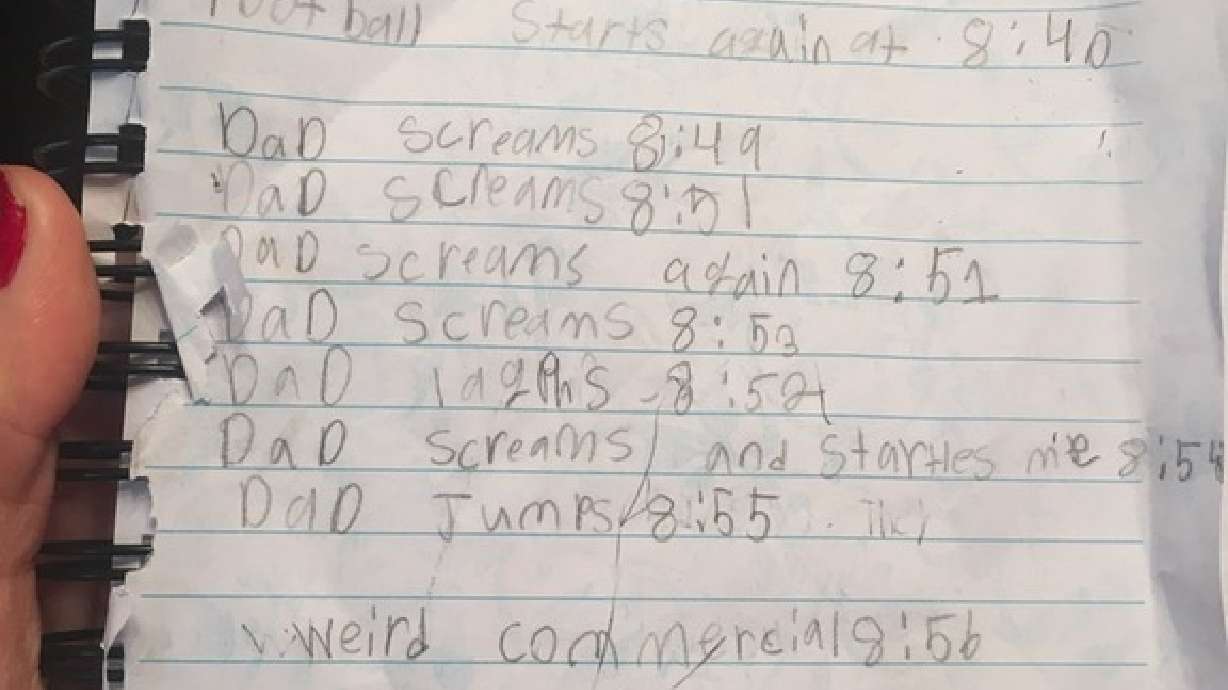 Football Starts again at 8:40
DaD screams 8:49
DaD screams 8:51
DaD screams again 8:51
DaD screams 8:53
DaD lagphs 8:54
DaD screams and startles me 8:54
DaD Jumps 8:55
weird commercial 8:56